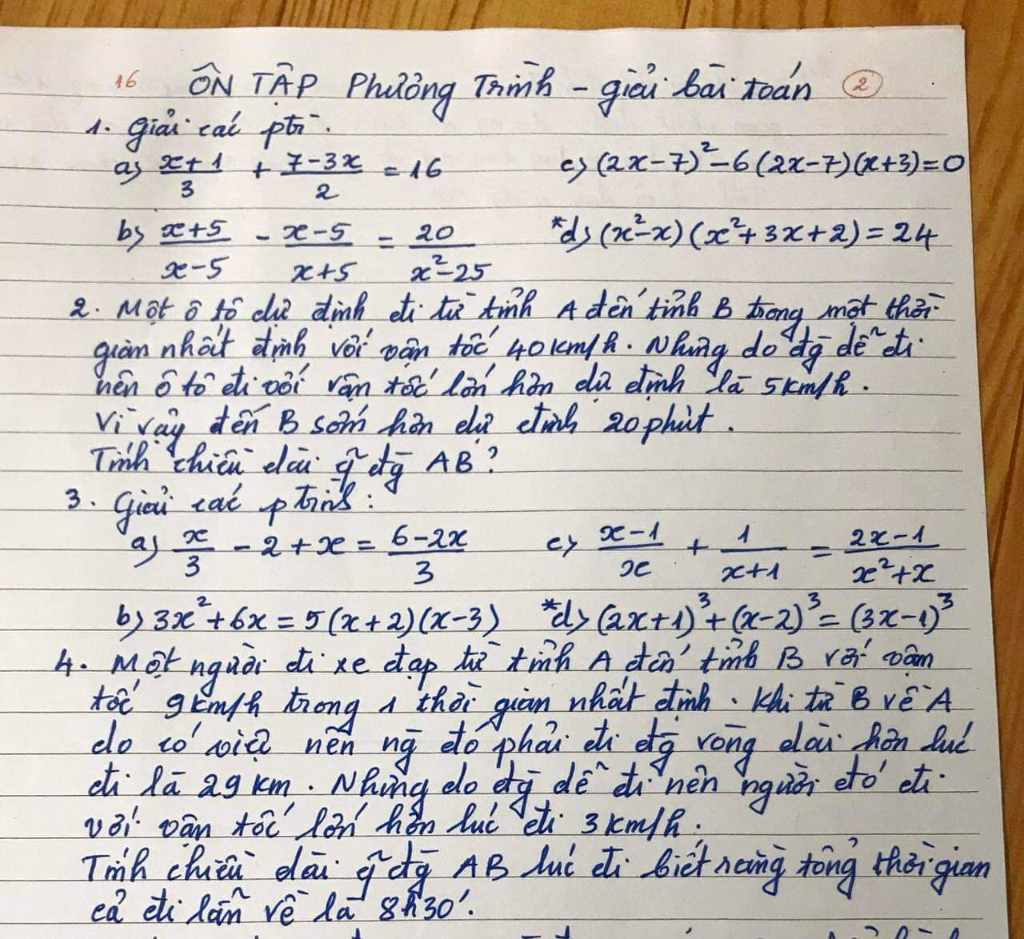 16 ÔN TẬP Phương Trình - giải bài toán 2
1. Giải các ptr̄.
a) (x+1)/3 + (7-3x)/2 = 16 c) (2x-7)² - 6(2x-7)(x+3) = 0
b) (x+5)/(x-5) - (x-5)/(x+5) = 20/(x²-25) *d) (x²-x)(x²+3x+2) = 24
2. Một ô tô dự định đi từ tỉnh A đến tỉnh B trong một thời
gian nhất định với vận tốc 40km/h. Nhưng do đg̃ dễ đi
nên ô tô đi với vận tốc lớn hơn dự định là 5km/h.
Vì vậy đến B sớm hơn dự định 20 phút.
Tính chiều dài q̃ đg̃ AB?
3. Giải các ptrình:
a) x/3 - 2 + x = (6-2x)/3 c) (x-1)/x + 1/(x+1) = (2x-1)/(x²+x)
b) 3x² + 6x = 5(x+2)(x-3) *d) (2x+1)³ + (x-2)³ = (3x-1)³
4. Một người đi xe đạp từ tỉnh A đến tỉnh B với vận
tốc 9km/h trong 1 thời gian nhất định. Khi từ B về A
do có việc nên ng̀ đó phải đi đg̀ vòng dài hơn lúc
đi là 29 km. Nhưng do đg̀ dễ đi nên người đó đi
với vận tốc lớn hơn lúc đi 3km/h.
Tính chiều dài q̃ đg̀ AB lúc đi biết rằng tổng thời gian
cả đi lẫn về là 8h30'.